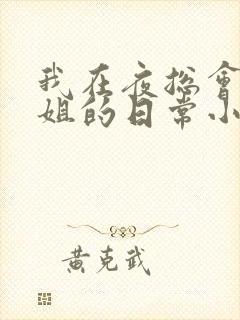 我在夜总會
姐的日常小
黄克武